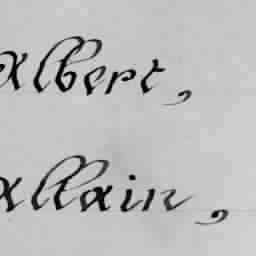 Albert,
Allain,